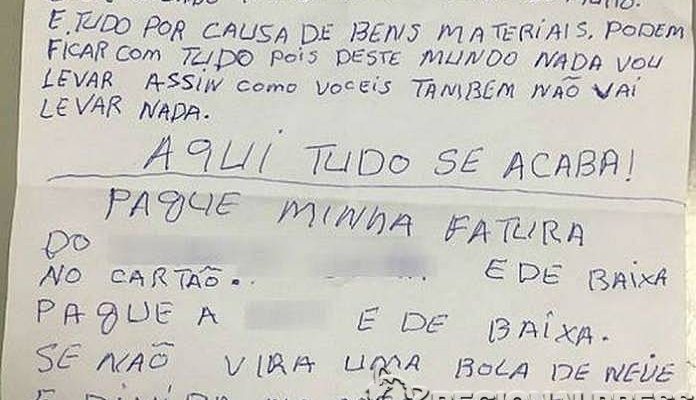 E. TUDO POR CAUSA DE BENS MATERIAIS, PODEM
FICAR COM TUDO POIS DESTE MUNDO NADA VOU
LEVAR ASSIN COMO VOCEIS TANBEM NÃO VAI
LEVAR NADA.
AQUI TUDO SE ACABA!
PAGUE MINHA FATURA
DO
NO CARTÃO.. E DE BAIXA
PAGUE A E DE BAIXA.
SE NAÕ VIRA UMA BOLA DE NEVE